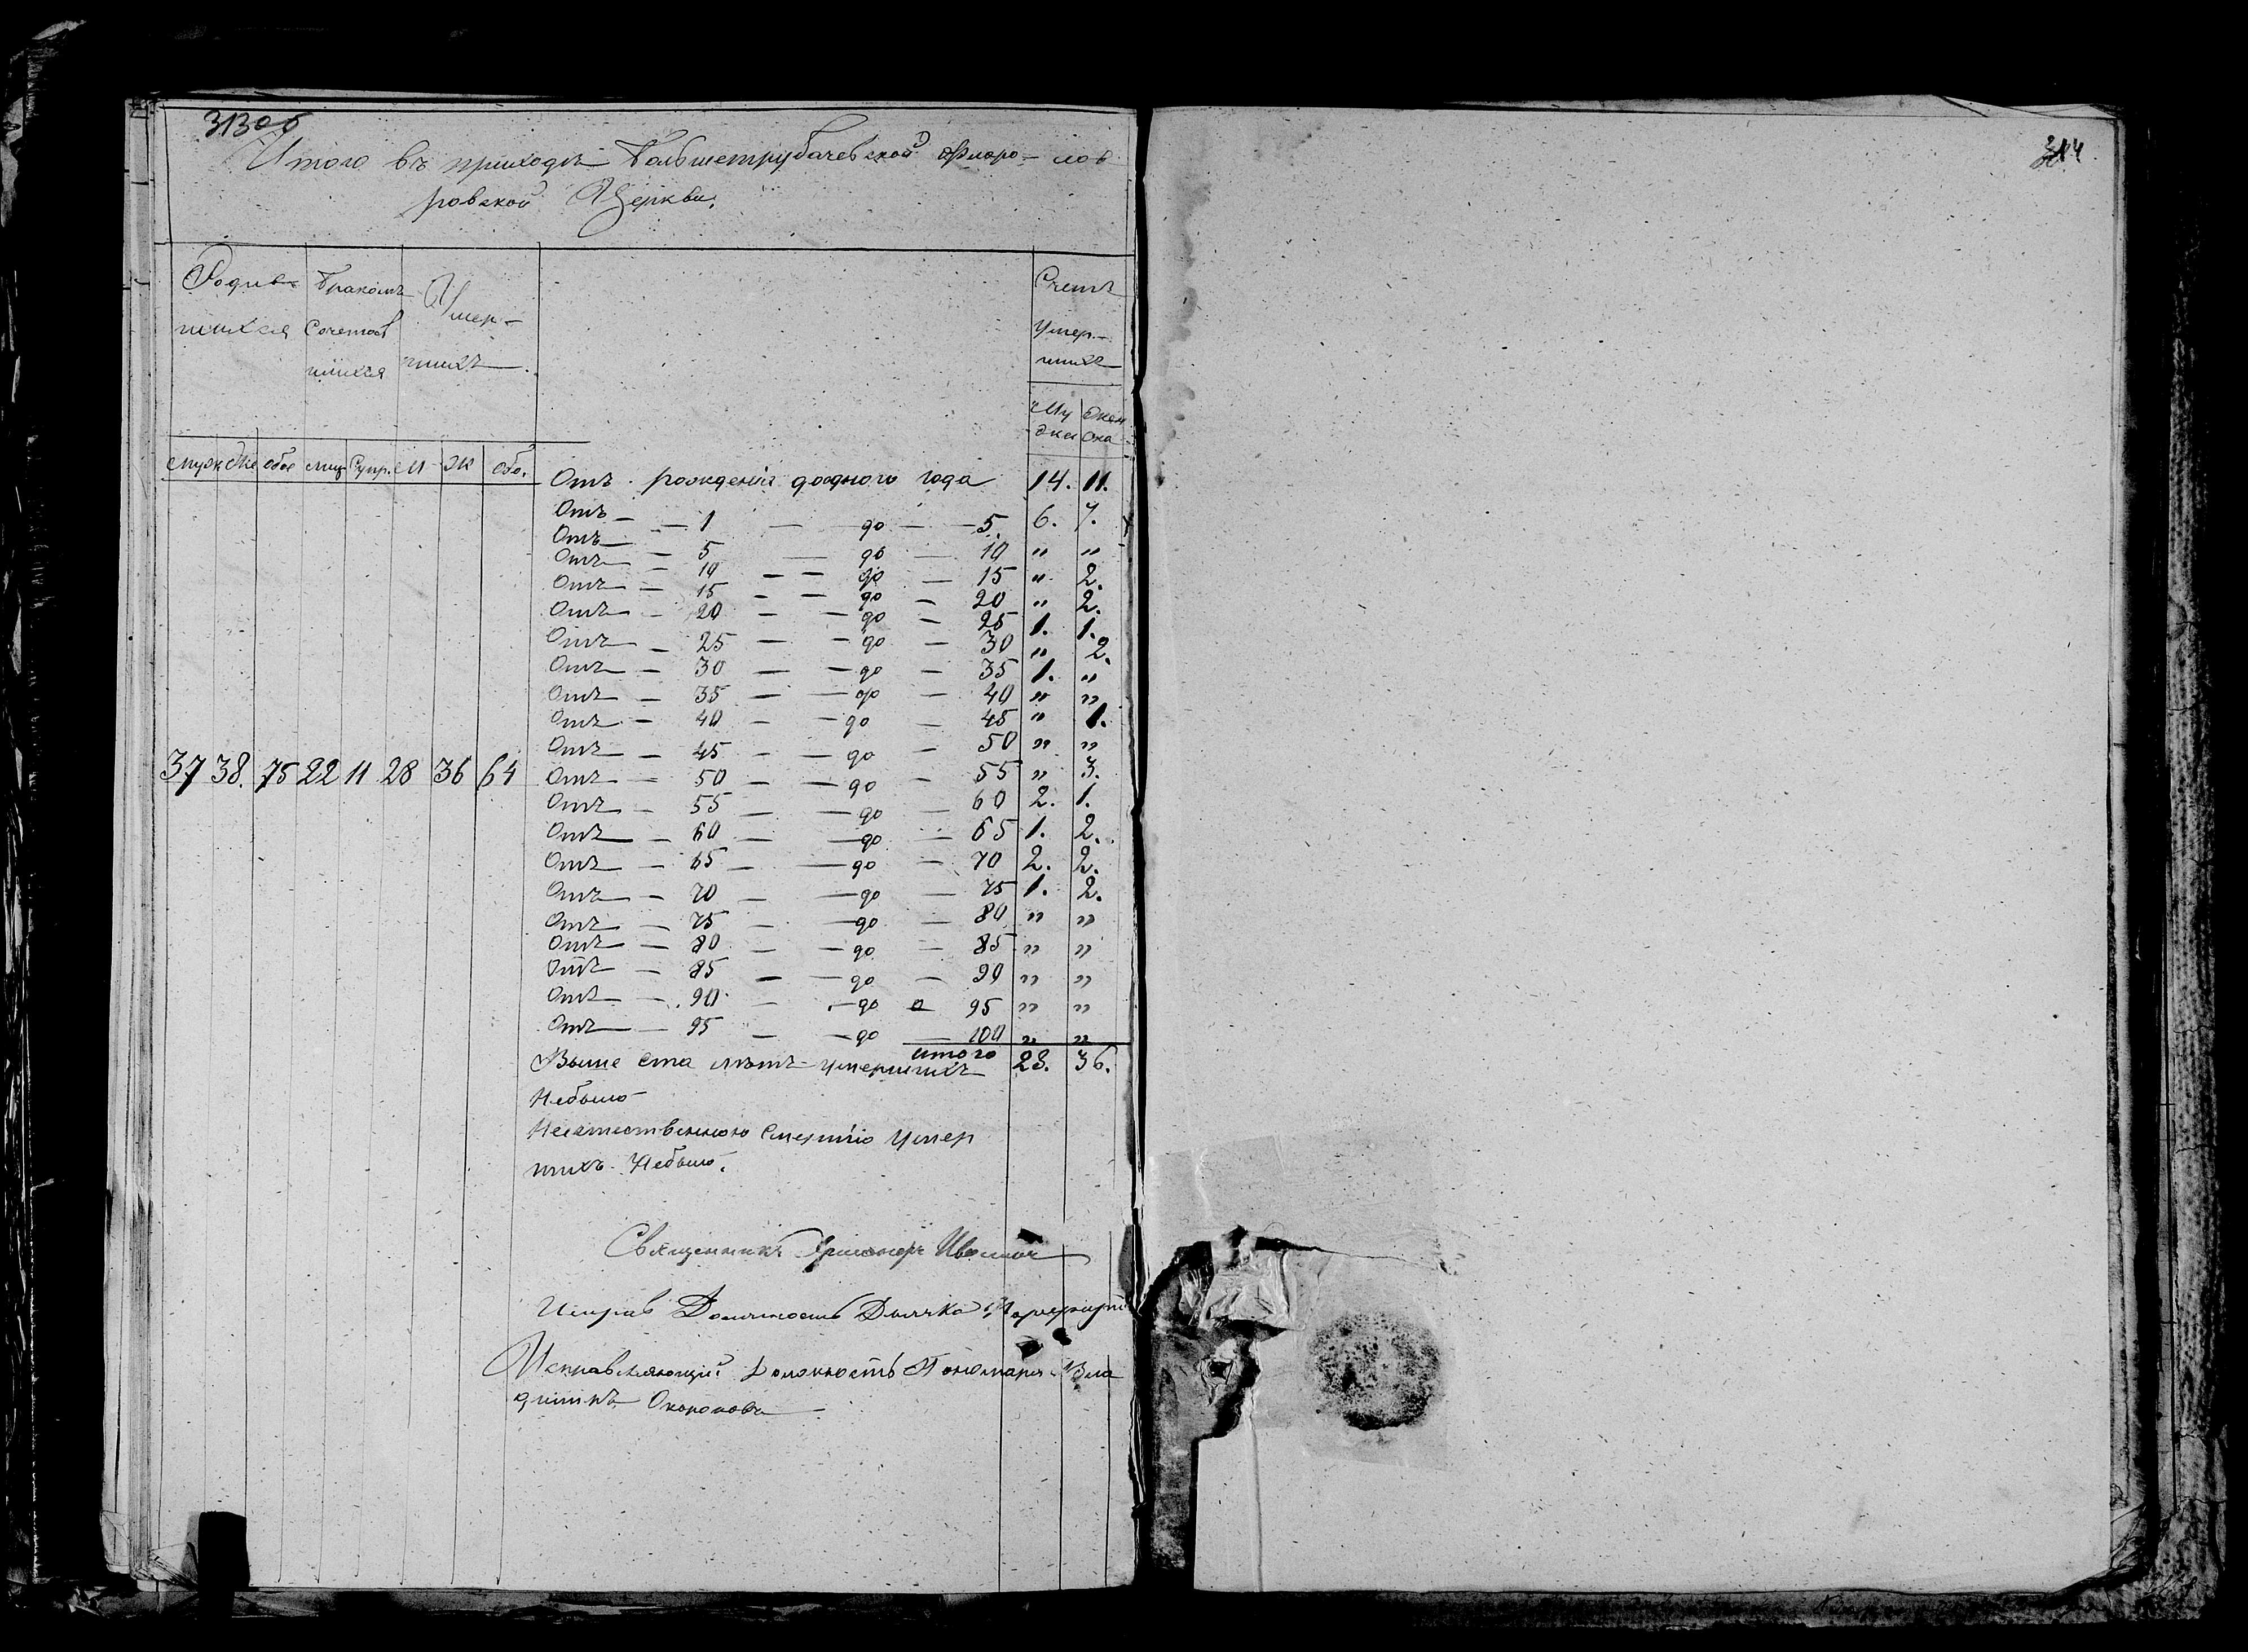 313 об
Итого въ приходѣ Большетрубачевской Флоро-лов
ровской Церкви.
Родив-
шихся
Бракомъ
Сочетав
шихся
Умер-
шихъ
Счетъ
Умер-
шихъ
Му
жеска
Жен
ска
Муж Же обое муж Супр. М Ж обо.
Отъ рожденія до одного года 14. 11.
Отъ 1 до 5 6. 7.
Отъ 5 до 10 " "
Отъ 10 до 15 " 2.
Отъ 15 до 20 " 2.
Отъ 20 до 25 1. 1.
Отъ 25 до 30 " 2.
Отъ 30 до 35 1. "
Отъ 35 до 40 " "
Отъ 40 до 45 " 1.
Отъ 45 до 50 " "
37 38. 75 22 11 28 36 64
Отъ 50 до 55 " 3.
Отъ 55 до 60 2. 1.
Отъ 60 до 65 1. 2.
Отъ 65 до 70 2. 2.
Отъ 70 до 75 1. 2.
Отъ 75 до 80 " "
Отъ 80 до 85 " "
Отъ 85 до 90 " "
Отъ 90 до 95 " "
Отъ 95 до 100 " "
итого 28. 36.
Выше ста лѣтъ умершихъ
Небыло
Неестественною смертію умер
шихъ Небыло.
Священникъ Григорій
Исправ Должность Дьячка
Исправляющій Должность Пономаря Вла
диміръ Скороковъ
314